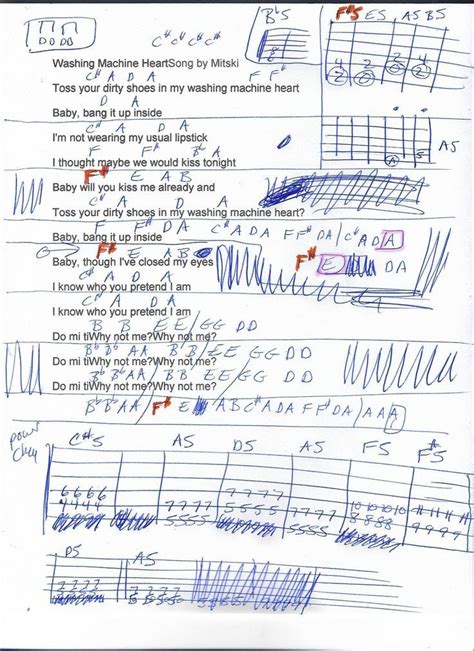 D O D D
B♭5
F#5 E5 A5 B5
C# C# C# C#
Washing Machine HeartSong by Mitski
C# A D A F F#
Toss your dirty shoes in my washing machine heart
D A
Baby, bang it up inside
C# A D A
I'm not wearing my usual lipstick
A5
F F# B♭ A
I thought maybe we would kiss tonight
F# E A B
Baby will you kiss me already and
C# A D A
Toss your dirty shoes in my washing machine heart?
F F# D A C# A D A F F# D A / C# A D A
Baby, bang it up inside
F# E A B F# E D A
Baby, though I've closed my eyes
C# A D A
I know who you pretend I am
I know who you pretend I am
B B E E / G G D D
Do mi tiWhy not me?Why not me?
B♭ B♭ A A B B / E E G G D D
Do mi tiWhy not me?Why not me?
B♭ B♭ A A / B B / E E G G D D
Do mi tiWhy not me?Why not me?
B♭ B♭ A A / F# E A B C# A D A F F# D A / A A A
power
C#5 A5 D5 A5 F5 F#5
6 6 6 6 7 7 7 7 7 7 7 7 10 10 10 10 11 11 11 11
4 4 4 4 5 5 5 5 5 5 5 5 8 8 8 8 9 9 9 9
D5 A5
7 7 7 7 7 7 7 7